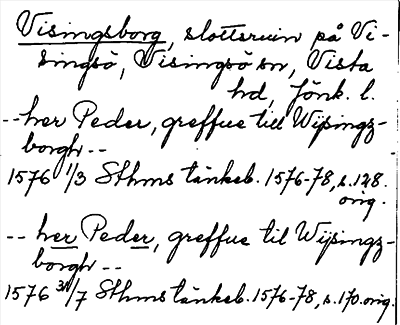 Visingsborg, slottsruin på Vi-
singsö, Visingsö sn, Vista
hd, Jönk. l.
-- her Peder, greffue till Wisingz-
borgh --
1576 1/3 Sthms tänkeb. 1576-78, s. 128.
orig.
-- her Peder, greffue til Wijsingz-
borgh --
1576 31/7 Sthms tänkeb. 1576-78, s. 170. orig.